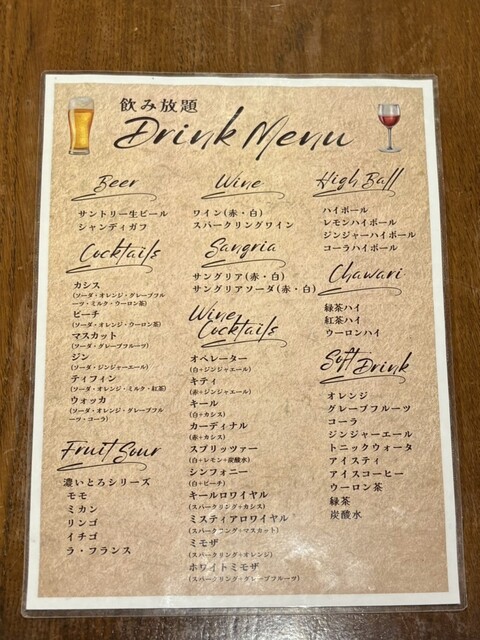 飲み放題
Drink Menu
Beer
サントリー生ビール
シャンディガフ
Cocktails
カシス
(ソーダ・オレンジ・グレープフル
ーツ・ミルク・ウーロン茶)
ピーチ
(ソーダ・オレンジ・ウーロン茶)
マスカット
(ソーダ・グレープフルーツ)
ジン
(ソーダ・ジンジャーエール)
ティフィン
(ソーダ・オレンジ・ミルク・紅茶)
ウォッカ
(ソーダ・オレンジ・グレープフル
ーツ・コーラ)
Fruit Sour
濃いとろシリーズ
モモ
ミカン
リンゴ
イチゴ
ラ・フランス
Wine
ワイン(赤・白)
スパークリングワイン
Sangria
サングリア(赤・白)
サングリアソーダ(赤・白)
Wine
Cocktails
オペレーター
(白+ジンジャエール)
キティ
(赤+ジンジャエール)
キール
(白+カシス)
カーディナル
(赤+カシス)
スプリッツァー
(白+レモン+炭酸水)
シンフォニー
(白+ピーチ)
キールロワイヤル
(スパークリング+カシス)
ミスティアロワイヤル
(スパークリング+マスカット)
ミモザ
(スパークリング+オレンジ)
ホワイトミモザ
(スパークリング+グレープフルーツ)
High Ball
ハイボール
レモンハイボール
ジンジャーハイボール
コーラハイボール
Chawari
緑茶ハイ
紅茶ハイ
ウーロンハイ
Soft Drink
オレンジ
グレープフルーツ
コーラ
ジンジャーエール
トニックウォータ
アイスティ
アイスコーヒー
ウーロン茶
緑茶
炭酸水